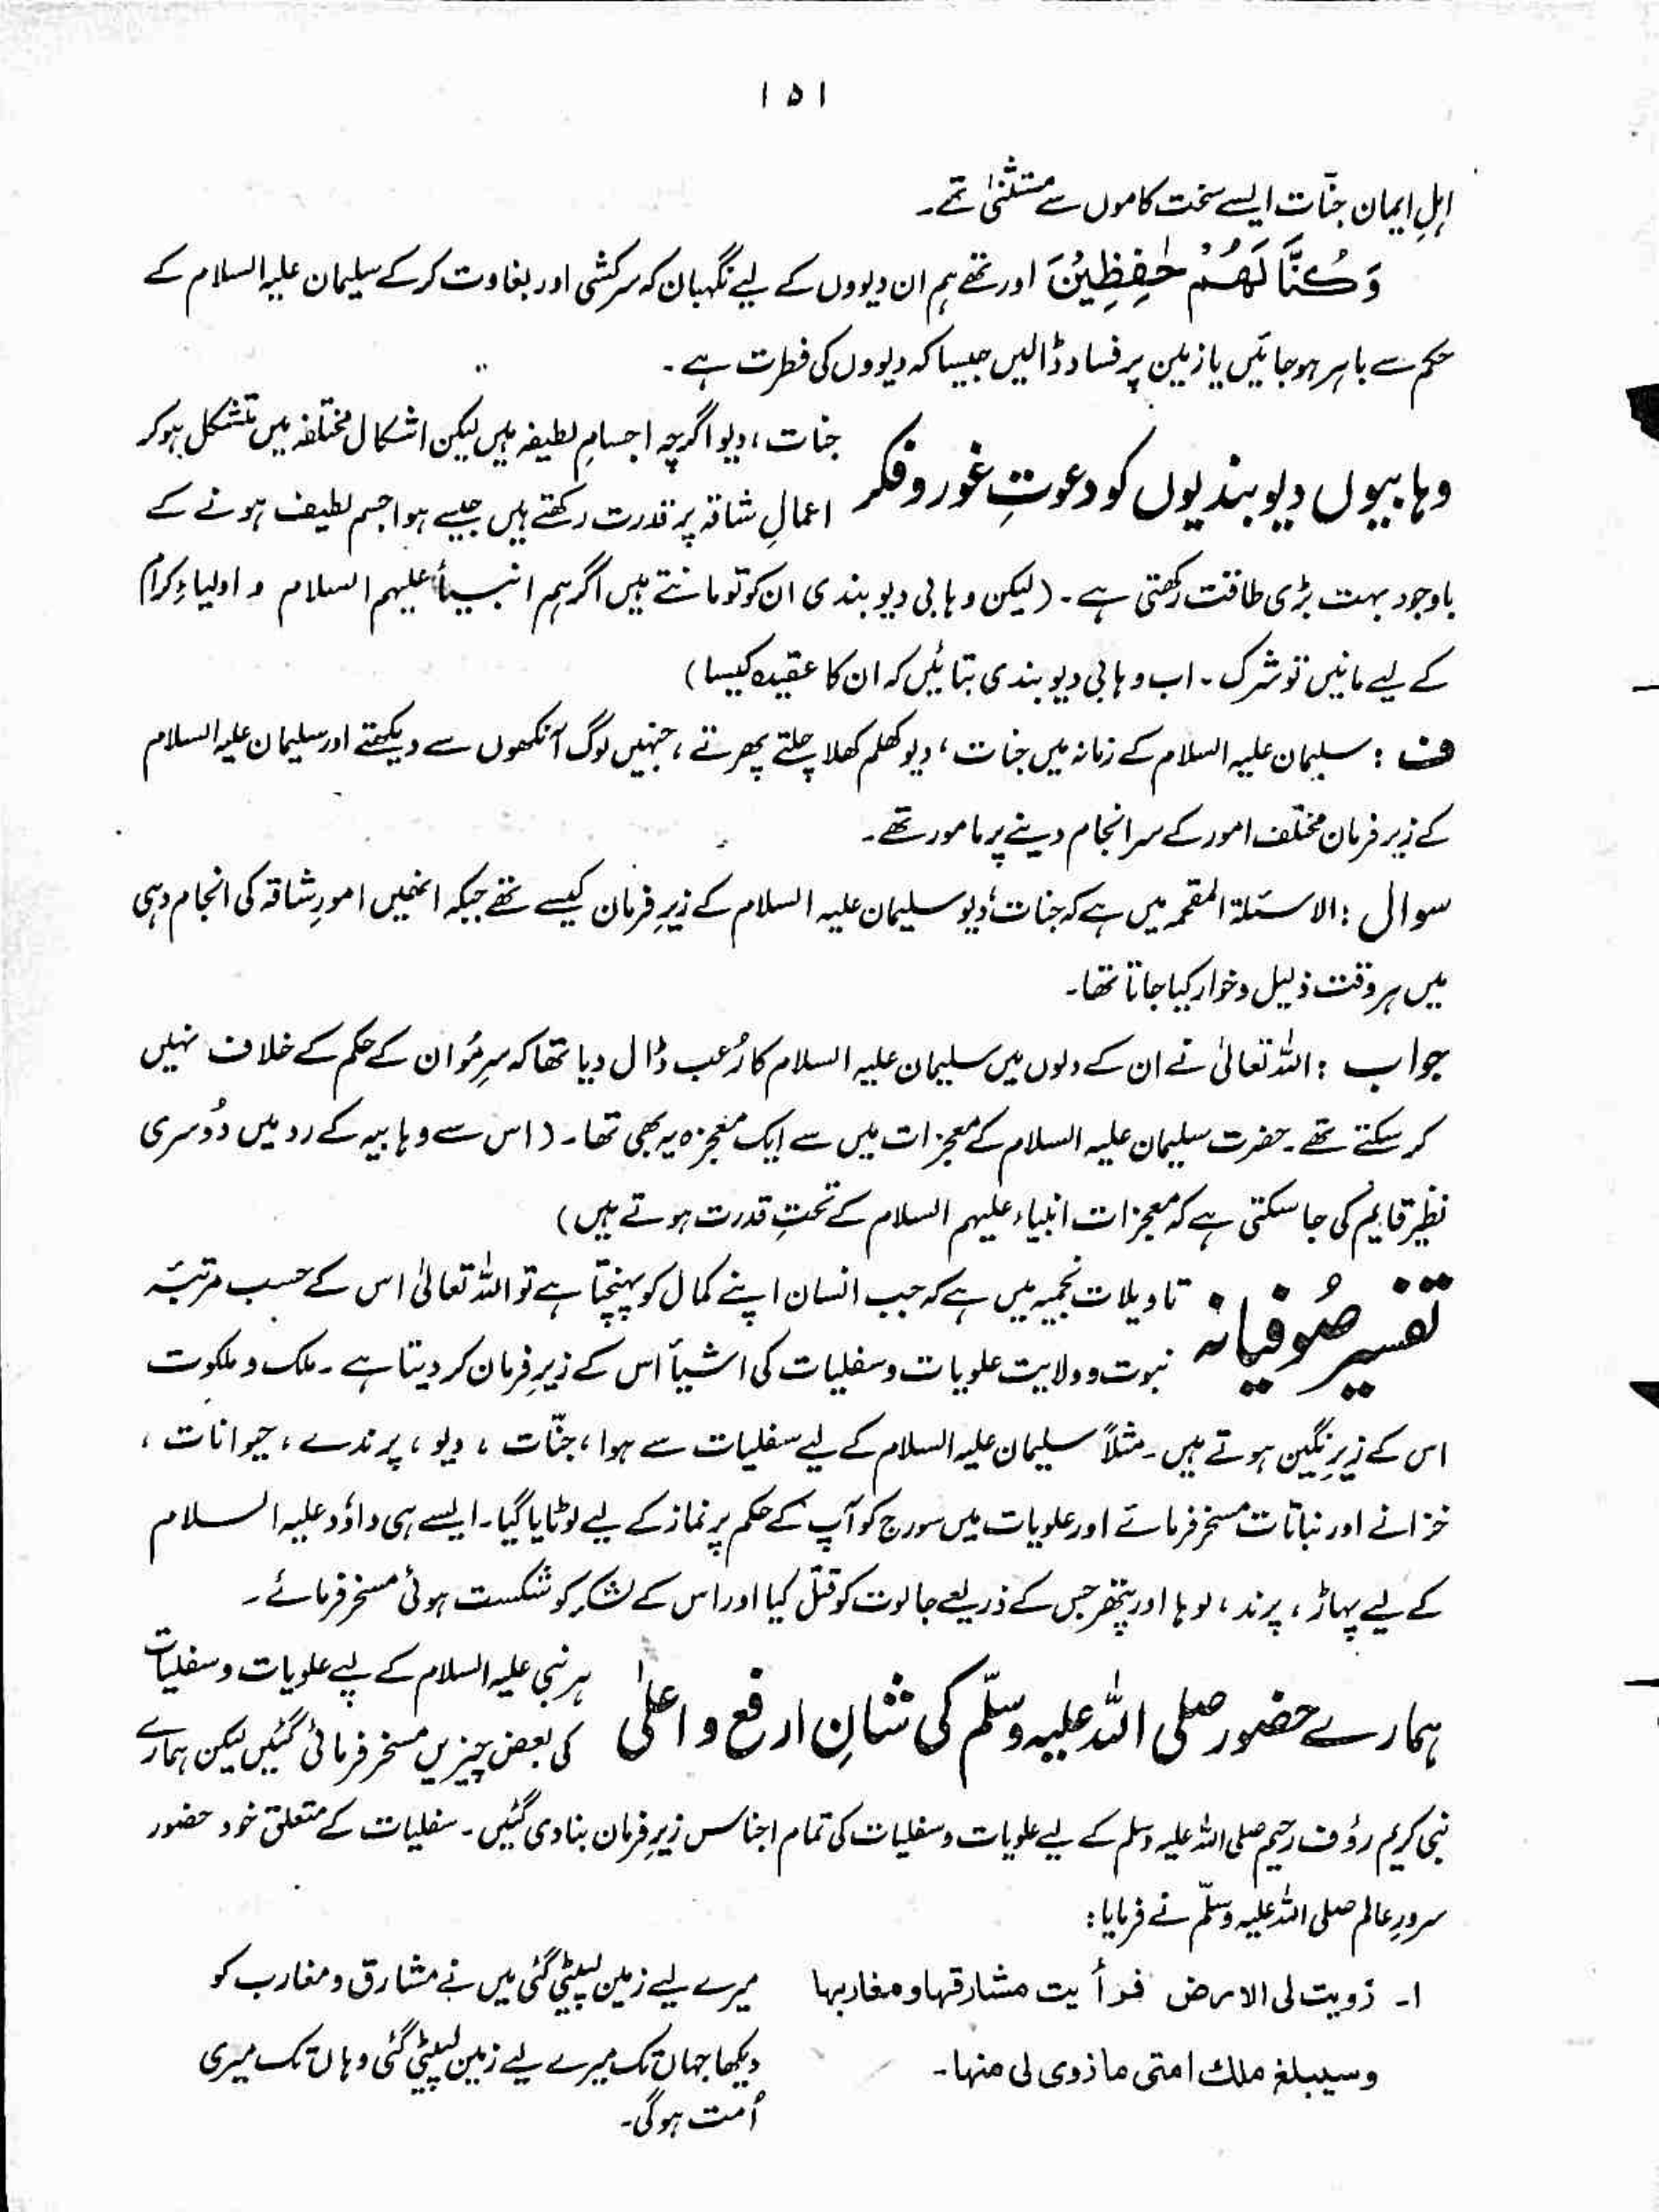 ۱۵۱
اہلِ ایمان جنّات ایسے سخت کاموں سے مستثنیٰ تھے۔
وَكُنَّا لَهُمْ حٰفِظِيْنَ اور تھے ہم ان دیووں کے لیے نگہبان کہ سرکشی اور بغاوت کرکے سلیمان علیہ السلام کے
حکم سے باہر ہو جائیں یا زمین پر فساد ڈالیں جیسا کہ دیووں کی فطرت ہے۔
وہابیوں دیوبندیوں کو دعوتِ غور و فکر
جنات، دیو اگرچہ اجسامِ لطیفہ ہیں لیکن اشکال مختلفہ میں متشکل ہو کر
اعمالِ شاقہ پر قدرت رکھتے ہیں جیسے ہوا جسم لطیف ہونے کے
باوجود بہت بڑی طاقت رکھتی ہے۔ (لیکن وہابی دیوبندی ان کو تو مانتے ہیں اگر ہم انبیاءً علیہم السلام و اولیاءِ کرام
کے لیے مانیں تو شرک۔ اب وہابی دیوبندی بتائیں کہ ان کا عقیدہ کیسا)
ف : سلیمان علیہ السلام کے زمانہ میں جنات، دیو کھلم کھلا چلتے پھرتے، جنہیں لوگ آنکھوں سے دیکھتے اور سلیمان علیہ السلام
کے زیر فرمان مختلف امور کے سر انجام دینے پر مامور تھے۔
سوال : الاسئلة المقحمہ میں ہے کہ جنات، دیو سلیمان علیہ السلام کے زیرِ فرمان کیسے تھے جبکہ انھیں امورِ شاقہ کی انجام دہی
میں ہر وقت ذلیل و خوار کیا جاتا تھا۔
جواب : اللہ تعالیٰ نے ان کے دلوں میں سلیمان علیہ السلام کا رُعب ڈال دیا تھا کہ سرِ مُو ان کے حکم کے خلاف نہیں
کر سکتے تھے۔ حضرت سلیمان علیہ السلام کے معجزات میں سے ایک معجزہ یہ بھی تھا۔ (اس سے وہابیہ کے رد میں دُوسری
نظیر قایم کی جا سکتی ہے کہ معجزات انبیاء علیہم السلام کے تحتِ قدرت ہوتے ہیں)
تفسیر صُوفیانہ
تاویلات نجمیہ میں ہے کہ جب انسان اپنے کمال کو پہنچتا ہے تو اللہ تعالیٰ اس کے حسب مرتبۂ
نبوت و ولایت علویات و سفلیات کی اشیأ اس کے زیرِ فرمان کر دیتا ہے۔ ملک و ملکوت
اس کے زیرِ نگین ہوتے ہیں۔ مثلاً سلیمان علیہ السلام کے لیے سفلیات سے ہوا، جنّات، دیو، پرندے، حیوانات،
خزانے اور نباتات مسخر فرمائے اور علویات میں سورج کو آپ کے حکم پر نماز کے لیے لوٹایا گیا۔ ایسے ہی داؤد علیہ السلام
کے لیے پہاڑ، پرند، لوہا اور پتھر جس کے ذریعے جالوت کو قتل کیا اور اس کے لشکر کو شکست ہوئی مسخر فرمائے۔
ہمارے حضور صلی اللہ علیہ وسلّم کی شانِ ارفع و اعلیٰ
ہر نبی علیہ السلام کے لیے علویات و سفلیات
کی بعض چیزیں مسخر فرمائی گئیں لیکن ہمارے
نبی کریم رؤف رحیم صلی اللہ علیہ وسلم کے لیے علویات و سفلیات کی تمام اجناس زیرِ فرمان بنا دی گئیں۔ سفلیات کے متعلق خود حضور
سرورِ عالم صلی اللہ علیہ وسلّم نے فرمایا :
۱۔ زويت لى الارض فرأيت مشارقها و مغاربها
وسيبلغ ملك امتى ما زوى لى منها۔
میرے لیے زمین لپیٹی گئی میں نے مشارق و مغارب کو
دیکھا جہاں تک میرے لیے زمین لپیٹی گئی وہاں تک میری
اُمت ہوگی۔